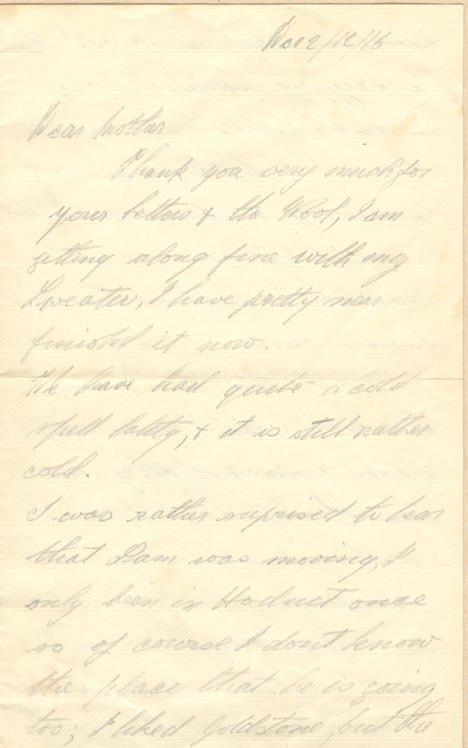 Dec 2/12/16
Dear Mother
Thank you very much for
your letters & the Wool, I am
getting along fine with my
Sweater, I have pretty near
finished it now.
We have had quite a cold
spell latly, & it is still rather
cold.
I was rather suprised to hear
that Sam was moving, I
only been in Hodnet once
so of course I dont know
the place that he is going
too; I liked Goldstone, but the